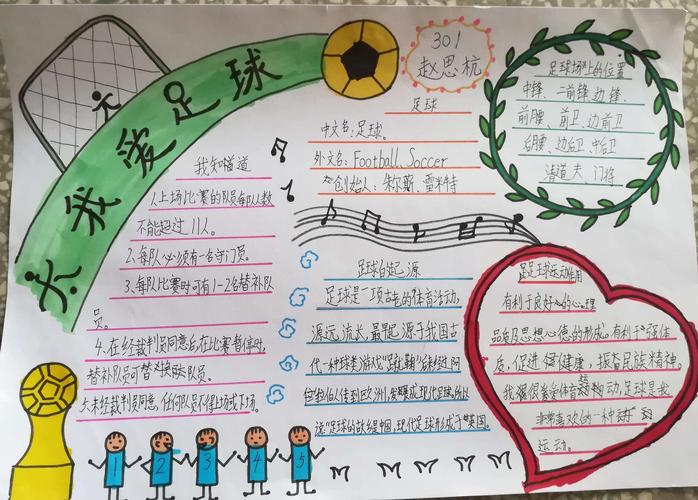 我爱足球
301
赵思杭
足球
中文名:足球。
外文名:Football、Soccer
创始人:朱尔斯、雷米特
足球场上的位置
中锋、二前锋、边锋、
前腰、前卫、边前卫
后腰、边后卫、中后卫
清道夫、门将
我知道
1.上场比赛的队员每队人数
不能超过11人。
2、每队必须有一名守门员。
3、每队比赛时可有1-2名替补队
员。
4、在经裁判员同意后,在比赛暂停时,
替补队员可替换队员。
未经裁判员同意,任何队员不得上场或下场。
足球的起源
足球是一项古老的体育活动,
源远流长,最早起源于我国古
代一种球类游戏
伯人传到欧洲,发展成现代足球
说"足球的故乡是中国,现代足球形成于英国。
足球运动作用
有利于良好的心理
品质及思想心德的形成。有利于强体
质,促进健康,振奋民族精神。
我很喜爱体育运动,足球是我
非常喜欢的一种
运动。
1
2
3
4
5